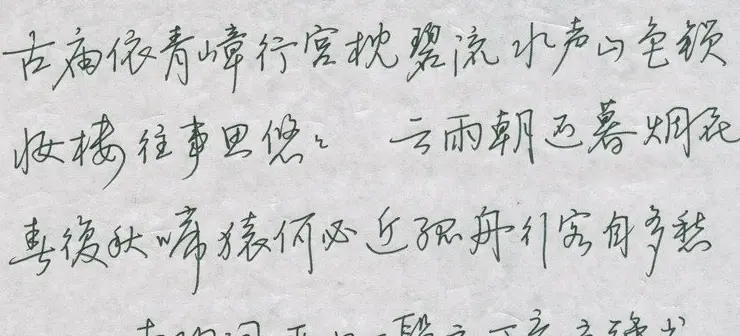 古庙依青嶂行宫枕碧流水声山色锁
妆楼往事思悠〻 云雨朝还暮烟花
春復秋啼猿何必近孤舟行客自多愁